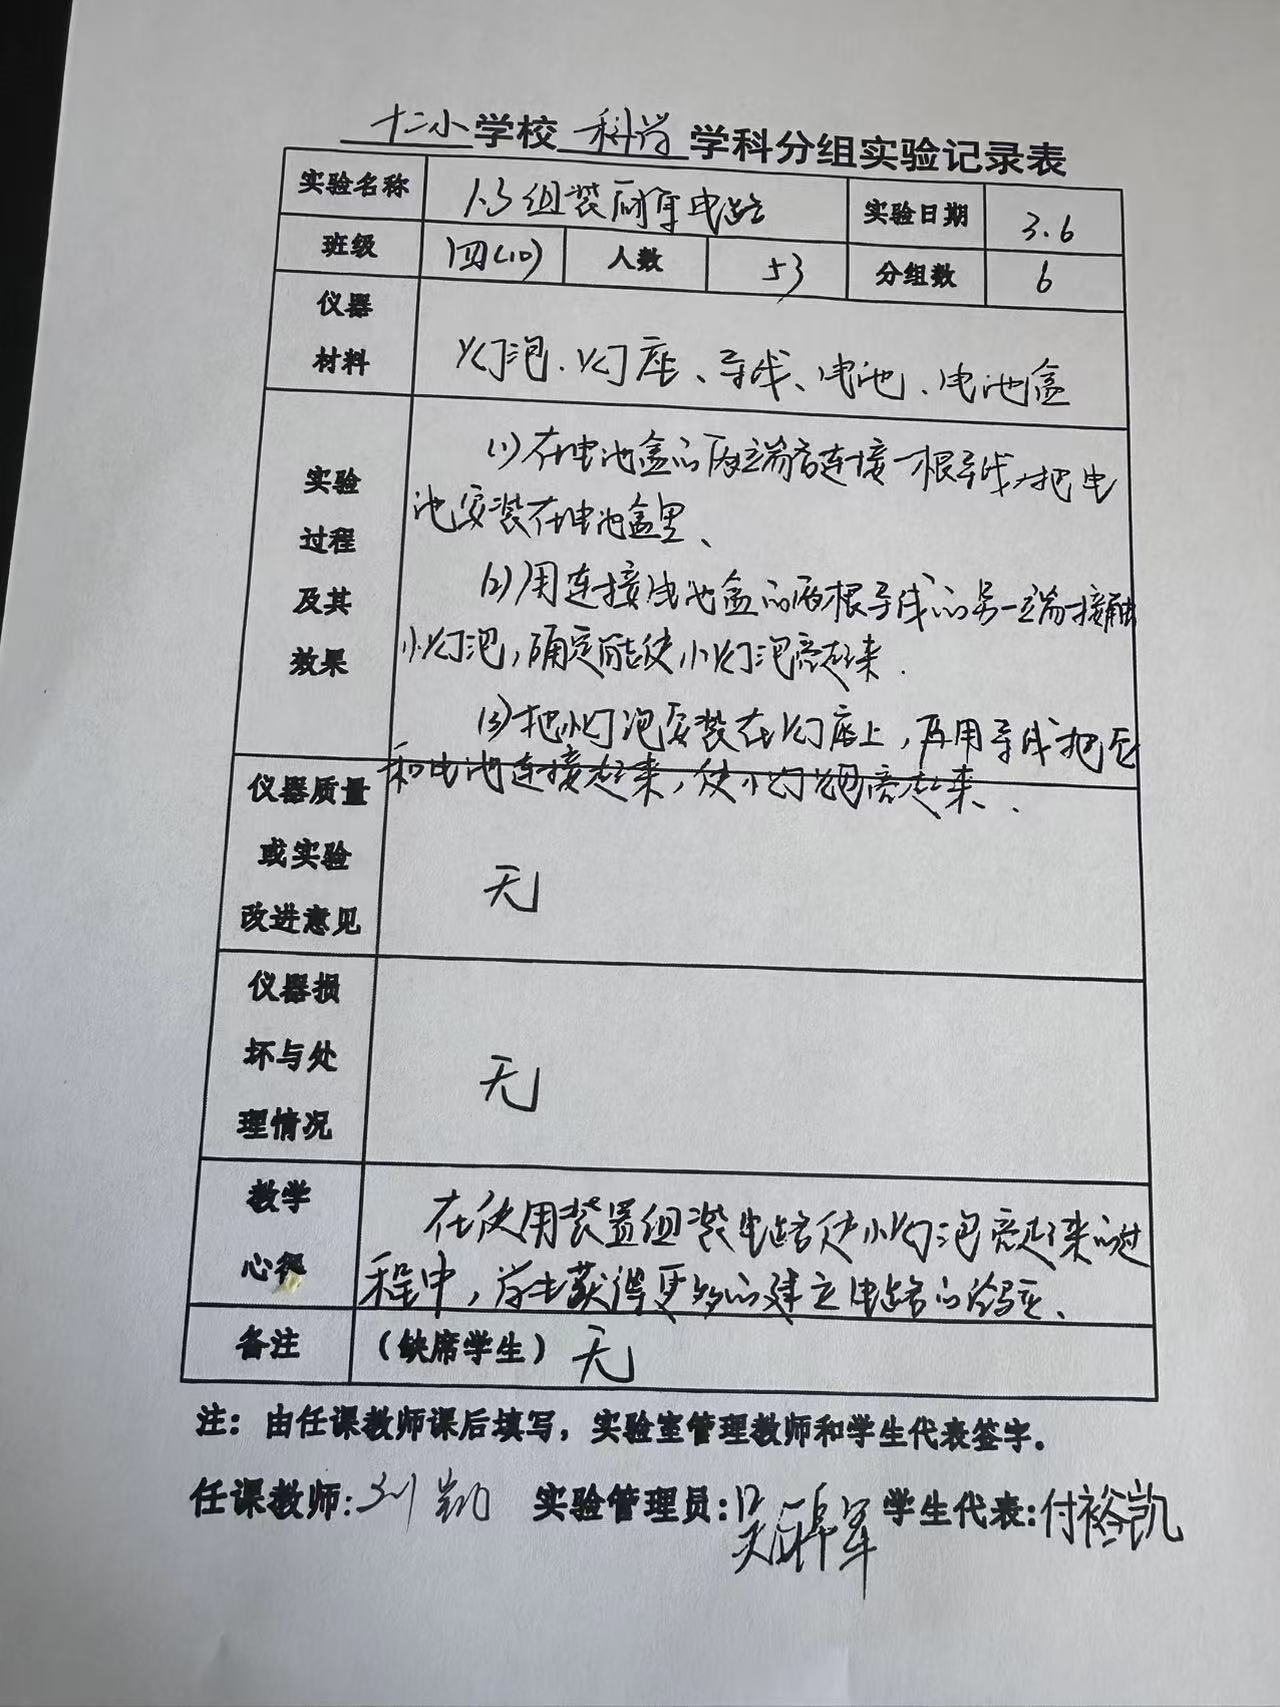 十二小学校 科学 学科分组实验记录表
实验名称 1.3组装简单电路 实验日期 3.6
班级 四(10) 人数 53 分组数 6
仪器
材料 灯泡、灯座、导线、电池、电池盒
实验
过程
及其
效果
(1)在电池盒的两端各连接一根导线,把电
池安装在电池盒里、
(2)用连接电池盒的两根导线的另一端接触
小灯泡,确定能使小灯泡亮起来.
(3)把小灯泡安装在灯座上,再用导线把它
和电池连接起来,使小灯泡亮起来、
仪器质量
或实验
改进意见
无
仪器损
坏与处
理情况
无
教学
心得
在使用装置组装电路使小灯泡亮起来的过
程中,学生获得更多的建立电路的经验、
备注 (缺席学生) 无
注:由任课教师课后填写,实验室管理教师和学生代表签字。
任课教师: 实验管理员: 学生代表:付裕凯